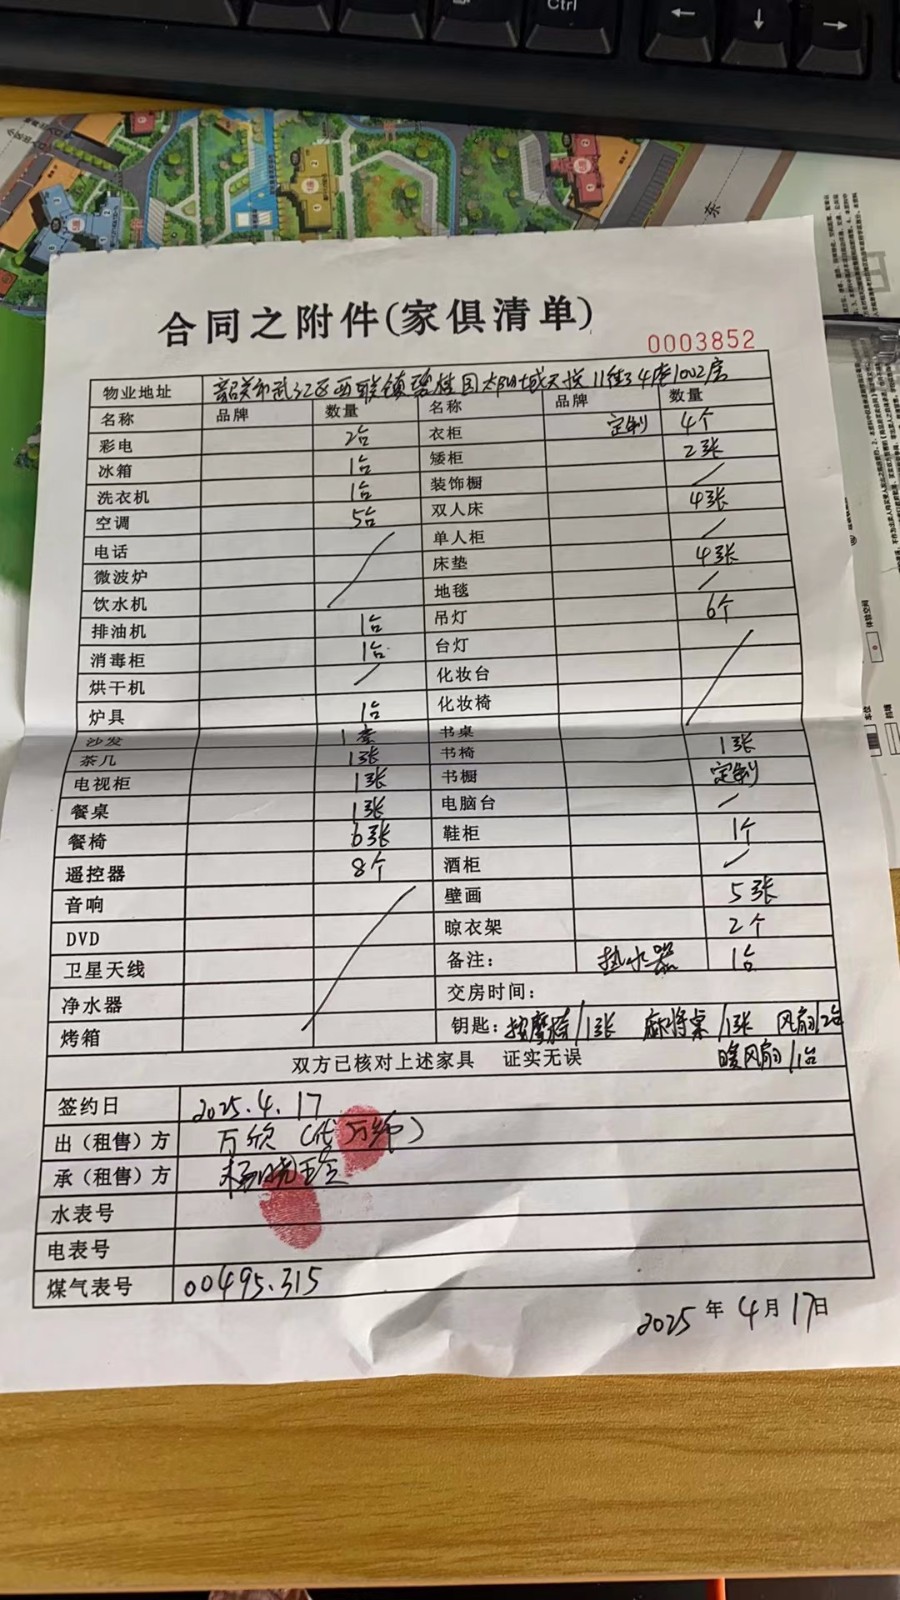 Ctrl
合同之附件(家俱清单)
0003852
物业地址 韶关市武江区西联镇碧桂园太阳城天悦11街34座1002房
名称 品牌 数量 名称 品牌 数量
彩电 2台 衣柜 定制 4个
冰箱 1台 矮柜 2张
洗衣机 1台 装饰橱 /
空调 5台 双人床 4张
电话 单人柜 /
微波炉 床垫 4张
饮水机 地毯 /
排油机 1台 吊灯 6个
消毒柜 1台 台灯
烘干机 / 化妆台
炉具 1台 化妆椅
沙发 1套 书桌
茶几 1张 书椅 1张
电视柜 1张 书橱 定制
餐桌 1张 电脑台 /
餐椅 6张 鞋柜 1个
遥控器 8个 酒柜 /
音响 壁画 5张
DVD 晾衣架 2个
卫星天线 备注: 热水器 1台
净水器 交房时间:
烤箱 钥匙: 按摩椅/1张 麻将桌/1张 风扇/2台
双方已核对上述家具 证实无误 暖风扇/1台
签约日 2025.4.17
出（租售）方 万欣（代万
承（租售）方 杨晓玲
水表号
电表号
煤气表号 00495.315
2025年4月17日